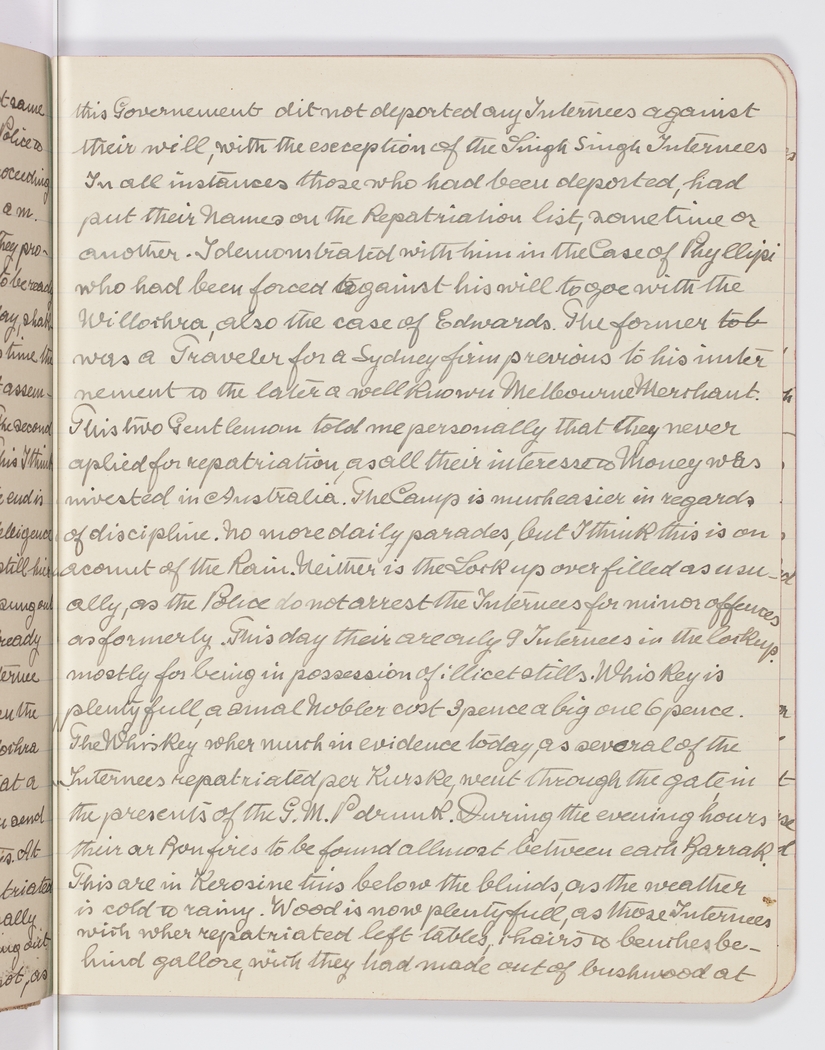 this Governement dit not deported any Internees against
their will, with the eseception of the Singh Singh Internees
In all instances those who had been deported, had
put their Names on the Repatriation list, sometime or
another. I demonstrated with him in the Case of Phyllipi
who had been forced against his will to goe with the
Willochra, also the case of Edwards. The former to b
was a Traveler for a Sydney firm previous to his inter
nement to the later a well known Melbourne Merchant.
This two Gentlemen told me personally that they never
aplied for repatriation, as all their interesse to Money was
invested in Australia. The Camp is much easier in regards
of discipline. No more daily parades, but I think this is on
acount of the Rain. Neither is the Lock up over filled as usu-
ally, as the Police do not arrest the Internees for minor offences
as formerly. This day their are only 9 Internees in the lockup.
mostly for being in possession of illicet stills. Whiskey is
plentyfull, a smal Nobler cost 3 pence a big one 6 pence.
The Whiskey wher much in evidence today, as several of the
Internees repatriated per Kurske, went through the gate in
the presents of the G.M.P drunk. During the evening hours
their ar Bonfires to be found allmost between each Barrak.
This are in Kerosine tins below the blinds, as the weather
is cold to rainy. Wood is now plentyfull, as those Internees
wich wher repatriated left tables, chairs to benches be-
hind gallore, wich they had made out of bushwood at